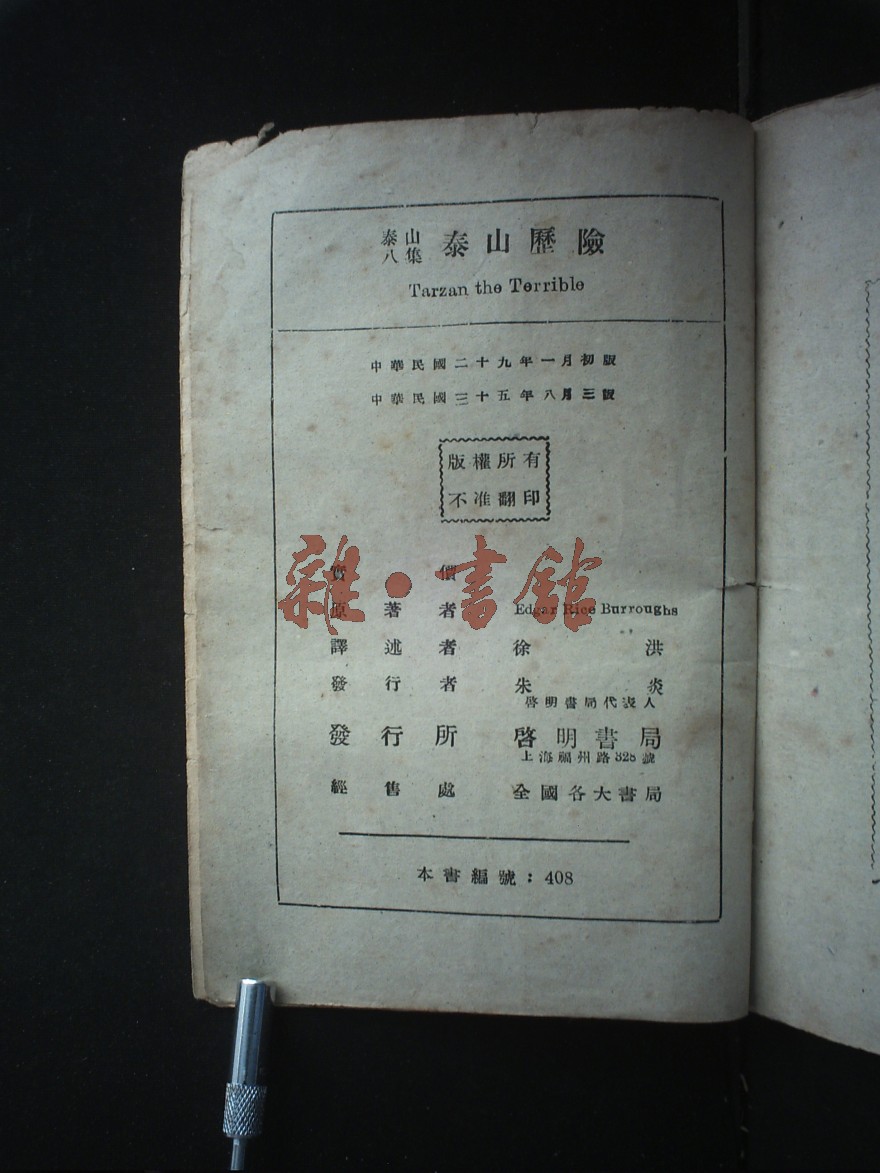 泰山八集 泰山歷險
Tarzan the Terrible
中華民國二十九年一月初版
中華民國三十五年八月三版
版權所有
不准翻印
雜·書館
實價
原著者 Edgar Rice Burroughs
譯述者 徐洪
發行者 朱炎
啓明書局代表人
發行所 啓明書局
上海福州路328號
經售處 全國各大書局
本書編號：408